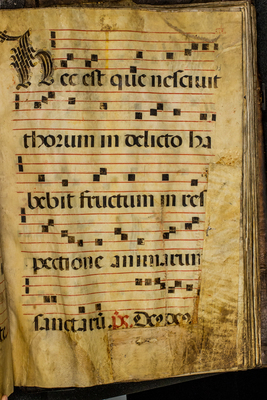 Hec est que nesciuit
thorum in delicto ha
bebit fructum in res
pectione animarum
sanctarū. ps.